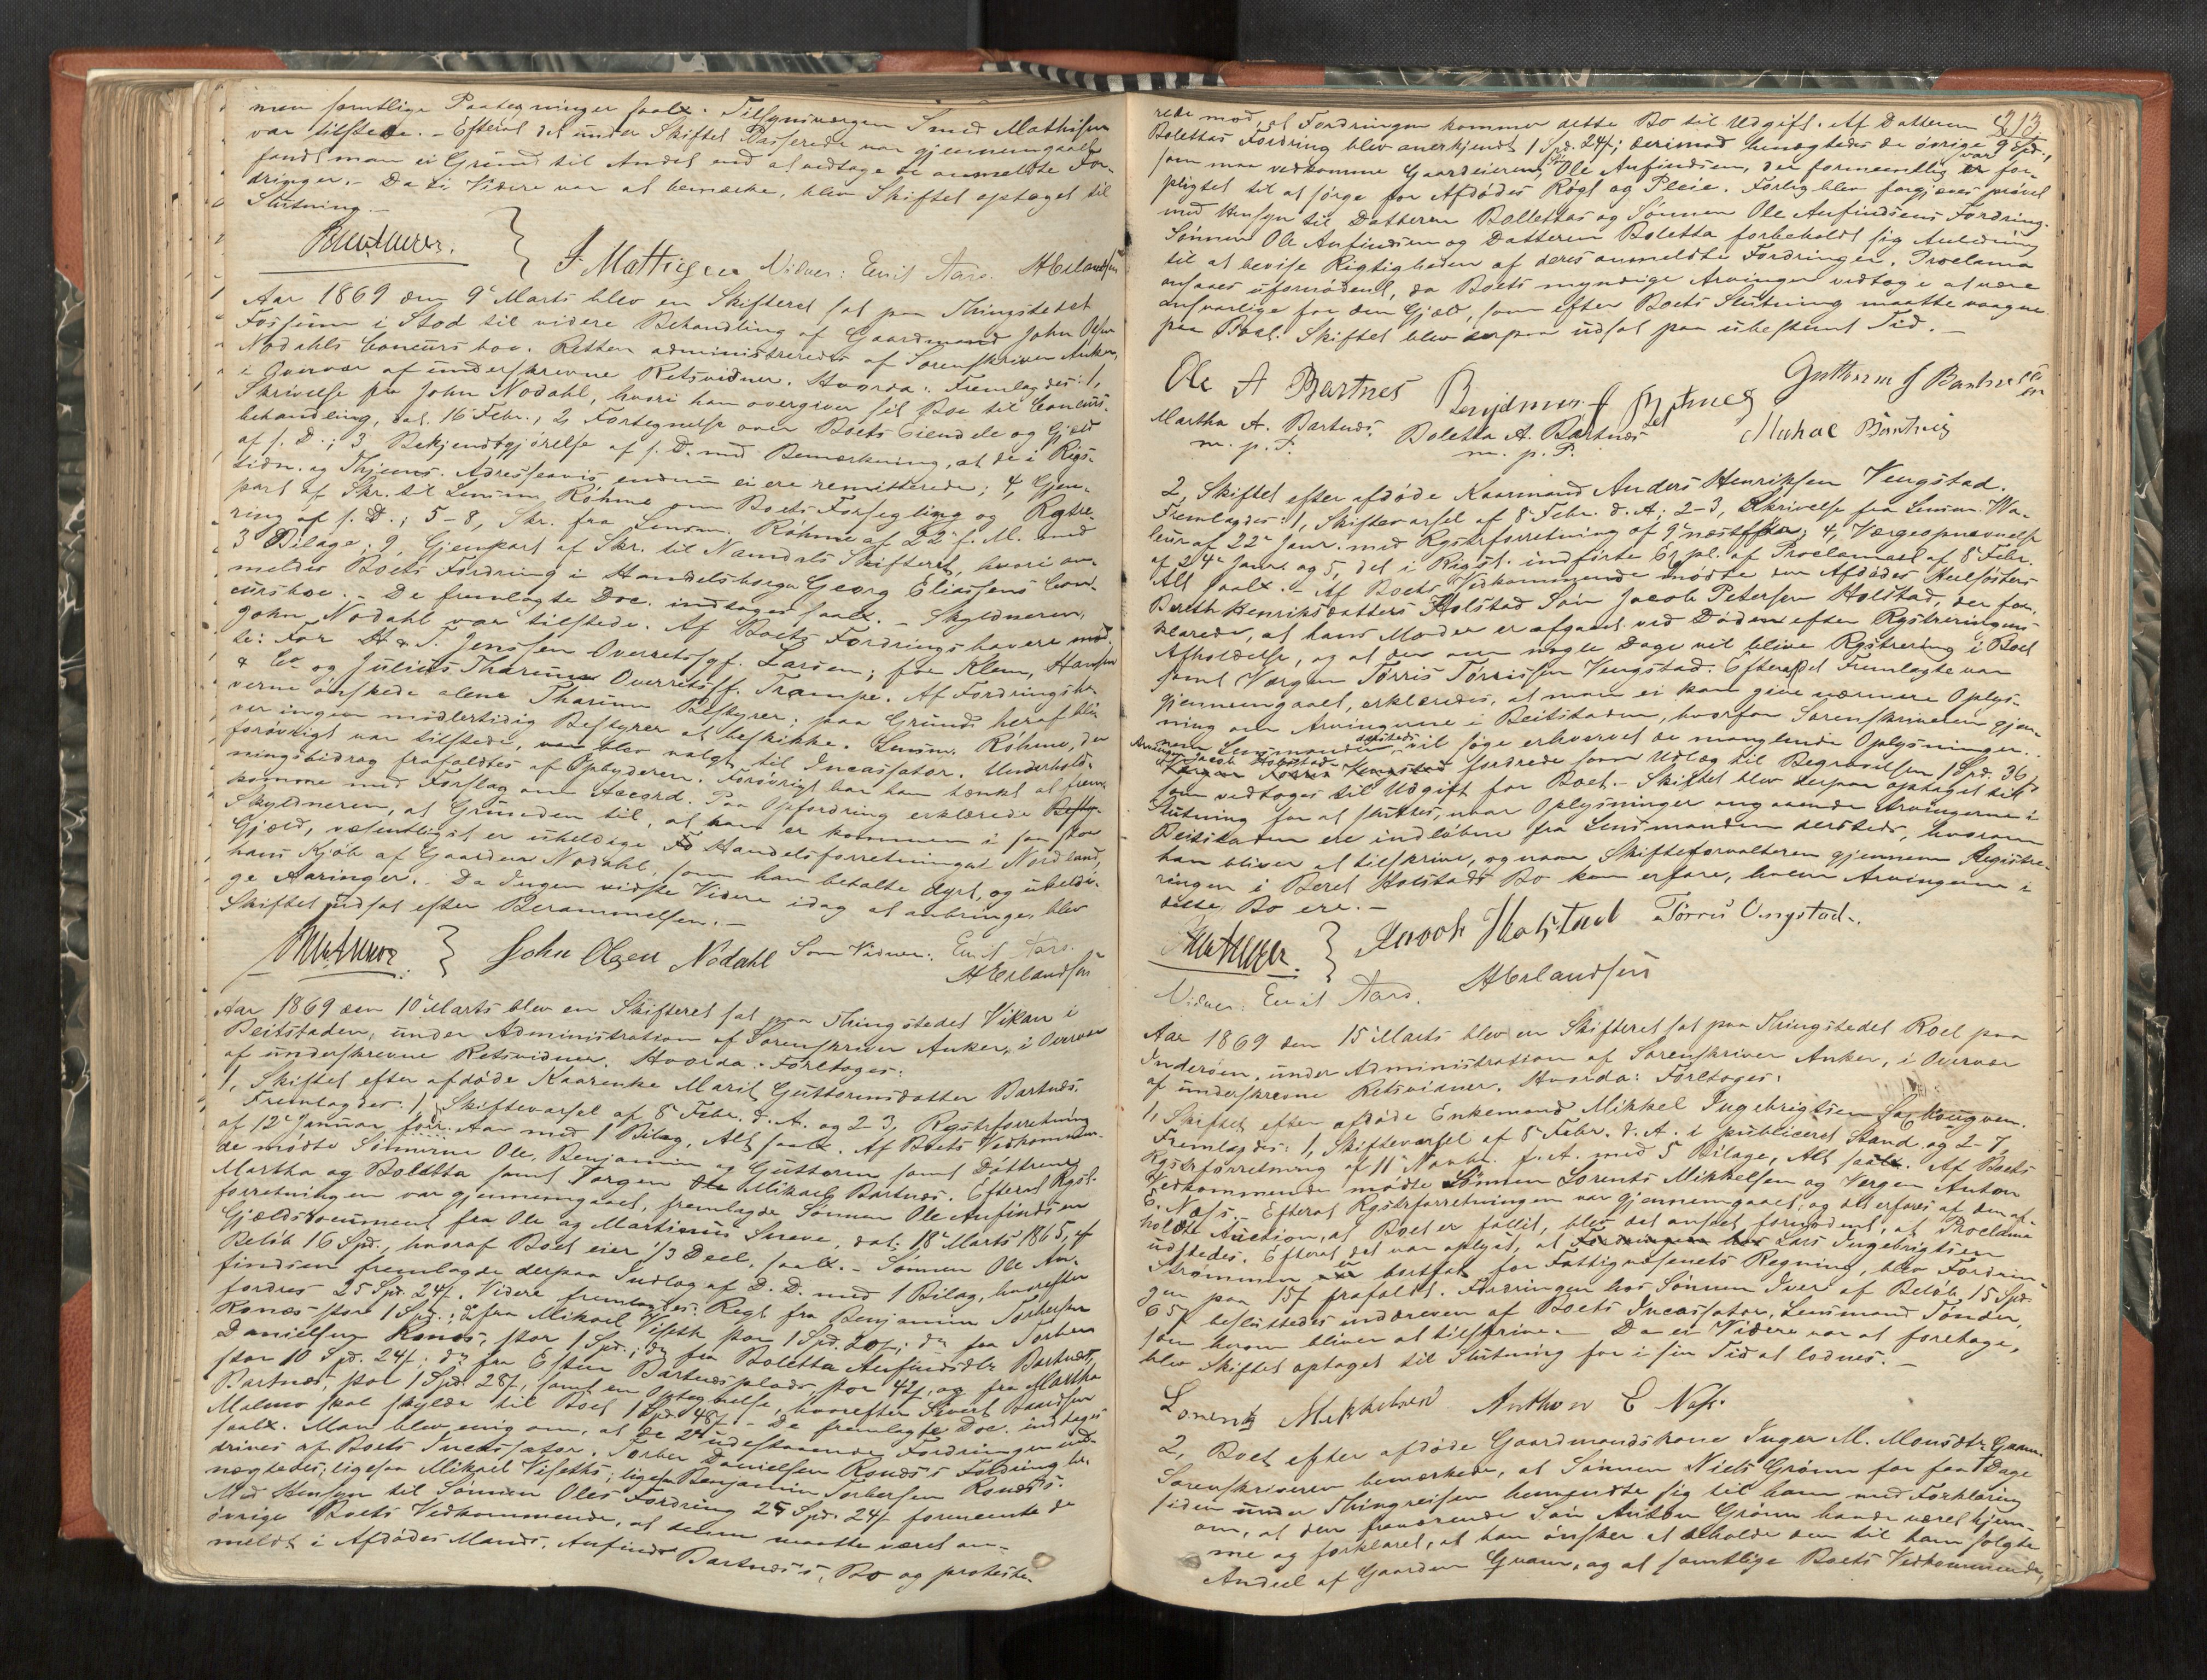 men samtlige Paategninger saalx. Tilsynsværgen Smed Mathisen
var tilstede. - Efterat det under Skiftet Passerede var gjennemgaaet
fandt man ei Grund til Andet end at vedtage de anmeldte For-
dringer. - Da ei Videre var at bemærke, blev Skiftet optaget til
Slutning. -
Vidner: Emil Aars. AErlandsen
Aar 1869 den 9de Marts blev en Skifteret sat paa Thingstedet
Fossum i Stod til videre Behandling af Gaardmand John Olsen
Nodahls Concursboe. Retten administreredes af Sorenskriver Anker,
i Overvær af underskrevne Retsvidner. Hvorda: Fremlagdes: 1,
Skrivelse fra John Nodahl, hvori han overgiver sit Boe til Concurs-
behandling, dat. 16 Febr.; 2, Fortegnelse over Boets Eiendele og Gjæld
af s. D.; 3, Bekjendtgjørelse af s. D. med Bemærkning, at de i Rigs-
tidn. og Thjems. Adresseavis endnu ei ere remitterede; 4, Gjen-
part af Skr. til Lensm. Röhme om Boets Forsegling og Rgstre-
ring af s. D.; 5-8, Skr. fra Lensm. Röhme af 22de f. M. med
3 Bilage; 9, Gjenpart af Skr. til Namdals Skifteret, hvori an-
meldes Boets Fordring i Handelsborger Georg Eliassens Con-
cursboe. - De fremlagte Doc. indtages saalx. - Skyldneren,
John Nodahl var tilstede. Af Boets Fordringshavere mød-
te: For H & T. Jenssen Overretssgf. Larsen; for Klem, Hansen
& Co og Julius Tharum Overretssf. Trampe. Af Fordringsha-
verne ønskede alene Tharum Bestyrer; paa Grund heraf blev
der ingen midlertidig Bestyrer at beskikke. Lensm. Röhme, der
forøvrigt var tilstede, blev valgt til Incassator. Underhold-
ningsbidrag frafaldtes af Opbyderen. Forøvrigt har han tænkt at frem-
komme med Forslag om Accord. Paa Opfordring erklærede
Skyldneren, at Grunden til, at han er kommen i saa stor
Gjæld, væsentligst er uheldige Handelsforretninger paa Nordland,
hans Kjöb af Gaarden Nodahl, som han betalte dyrt, og uheldi-
ge Aaringer. Da Ingen vidste Videre idag at anbringe, blev
Skiftet udsat efter Berammelsen. -
John Olsen Nodahl Som Vidner: Emil Aars.
AErlandsen
Aar 1869 den 10de Marts blev en Skifteret sat paa Thingstedet Vikan i
Beitstaden, under Administration af Sorenskriver Anker, i Overvær
af underskrevne Retsvidner. Hvorda: Foretoges:
1, Skiftet efter afdöde Kaarenke Marit Guttormsdatter Bartnæs.
Fremlagdes: 1, Skiftevarsel af 8de Febr. d. A. og 2-3, Rgstrforretning
af 12te Januar før. Aar med 1 Bilag, Alt saalx. Af Boets Vedkommen-
de mødte Sønnerne Ole, Benjamin og Guttorm samt Døttrene
Martha og Bolettha samt Værgen Mikael Bartnæs. Efterat Rgst.
forretningen var gjennemgaaet, fremlagde Sønnen Ole Anfindsen
Gjældsdocument fra Ole og Martinus Skreve, dat. 18de Marts 1865, af
Beløb 16 Spd., hvoraf Boet eier 1/3 Deel, saalx. - Sønnen Ole An-
findsen fremlagde derpaa Indlæg af D. D. med 1 Bilag, hvorefter
fordres 25 Spd. 24 s. Videre fremlagdes: Regl. fra Benjamin Torbersen
Konæs stor 1 Spd.; fra Mikael Viseth stor 1 Spd. 20 s.; do fra Torber
Danielsen Konæs, stor 1 Spd.; do fra Boletta Anfindsdtr Bartnæs,
stor 10 Spd. 24 s.; do fra Esten Bartnæsplads stor 42 s., og fra Martha
Bartnæs, stor 1 Spd. 28 s., samt en Optegnelse, hvorefter Sivert Paulsen
Malmo skal skylde til Boet 1 Spd. 48 s. - De fremlagte Doc. indtages
saalx. Man blev enig om, at de 2de udestaaende Fordringer ind-
drives af Boets Incassator. Torber Danielsen Konæs's Fordring be-
nægtedes; ligesaa Mikael Viseths; ligesaa Benjamin Torbersen Konæs's.
Med Hensyn til Sønnen Oles Fordring 25 Spd. 24 s. formeente de
øvrige Boets Vedkommende, at denne maatte været an-
meldt i Afdødes Mands, Anfind Bartnæs's, Bo og proteste-
213
rede mod, at Fordringen kommer dette Bo til Udgift. Af Datteren
Bolettas Fordring blev anerkjendt 1 Spd. 24 s.; derimod benægtedes de øvrige 9 Spd.,
som maa vedkomme Gaardeieren, Ole Anfindsen, der formeentlig var for-
pligtet til at sørge for Afdødes Røgt og Pleie. Forlig blev forgjæves prøvet
med Hensyn til Datteren Bolettas og Sønnen Ole Anfindsens Fordring.
Sønnen Ole Anfindsen og Datteren Boletta forbeholdt sig Anledning
til at bevise Rigtigheden af deres anmeldte Fordringer. Proclama
ansaaes ufornødent, da Boets myndige Arvinger vedtoge at være
ansvarlige for den Gjæld, som efter Boets Slutning maatte vaagne
paa Boet. Skiftet blev derpaa udsat paa ubestemt Tid. -
Ole A Bartnes Benjamin A Bartnes Guttorm A Bartnes
Martha A. Bartnæs. Boletta A. Bartnæs Mikael Bartnes
m. p. P. m. p. P.
2, Skiftet efter afdøde Kaarmand Anders Henriksen Vengstad.
Fremlagdes: 1, Skiftevarsel af 8de Febr. d. A.; 2-3, Skrivelse fra Lensm. Wa-
leur af 22de Janr. med Rgstrforretning af 9de næstfør; 4, Værgeopnævnelse
af 24de Janr. og 5, det i Rigst. indførte Expl. af Proclamaet af 8de Febr.
Alt saalx. - Af Boets Vedkommende mødte den Afdødes Helsøsters
Bereth Henriksdatters Holstad Søn Jacob Petersen Holstad, der for-
klarede, at hans Moder er afgaaet ved Døden efter Rgstreringens
Afholdelse, og at der om nogle Dage vil blive Rgstrering i Boet
samt Værgen Torris Torrissen Vengstad. Efterat det Fremlagte var
gjennemgaaet, erklæredes, at man ei kan give nærmere Oplys-
ning om Arvingerne i Beitstaden, hvorfor Sorenskriveren gjen-
nem Lensmanden dersteds vil søge erhvervet de manglende Oplysninger.
Arvingen Jacob Holstad fordrede som Udlæg til Begravelsen 1 Spd. 36 s.
som vedtoges til Udgift for Boet. - Skiftet blev derpaa optaget til
Slutning for at sluttes, naar Oplysninger angaaende Arvingerne i
Beitstaden ere indløbne fra Lensmanden dersteds, hvorom
han bliver at tilskrive, og naar Skifteforvalteren gjennem Registre-
ringen i Beret Holstads Bo kan erfare, hvem Arvingerne i
dette Bo ere. -
Jacob Holstad Torris Vngstad.
Vidner: Emil Aars. AErlandsen
Aar 1869 den 15de Marts blev en Skifteret sat paa Thingstedet Roel paa
Inderøen, under Administration af Sorenskriver Anker, i Overvær
af underskrevne Retsvidner. Hvorda: Foretoges:
1, Skiftet efter afdøde Enkemand Mikkel Ingebrigtsen
Fremlagdes: 1, Skiftevarsel af 8de Febr. d. A. i publiceret Stand og 2-7,
Rgstrforretning af 11te Novbr. f. A. med 5 Bilage, Alt saalx. Af Boets
Vedkommende mødte Sønnen Lorents Mikkelsen og Værgen Anton
E. Næss. - Efterat Rgstrforretningen var gjennemgaaet, og det erfares af den af-
holdte Auction, at Boet er fallit, blev det anseet fornødent, at Proclama
udstedes. Efterat det var oplyst, at Lars Ingebrigtsen
Strømmen er bortsat for Fattigvæsenets Regning, blev Fordrin-
gen paa 15 s frafaldt. Fordringen hos Sønnen Iver af Beløb 15 Spd.
65 s besluttedes inddreven af Boets Incassator, Lensmand Tønder,
som herom bliver at tilskrive. - Da ei Videre var at foretage,
blev Skiftet optaget til Slutning for i sin Tid at lodnes. -
Lorents Mikkelsen Anthon E Næss.
2, Boet efter afdøde Gaardmandskone Inger M. Monsdtr Gran.
Sorenskriveren bemærkede, at Sønnen Niels Grønn for faa Dage
siden under Thingreisen henvendte sig til ham med Forklaring
om, at den fraværende Søn Anton Grønn havde været hjem-
me og forklaret, at han ønsker at beholde den til ham solgte
Andeel af Gaarden Gran, og at samtlige Boets Vedkommende,